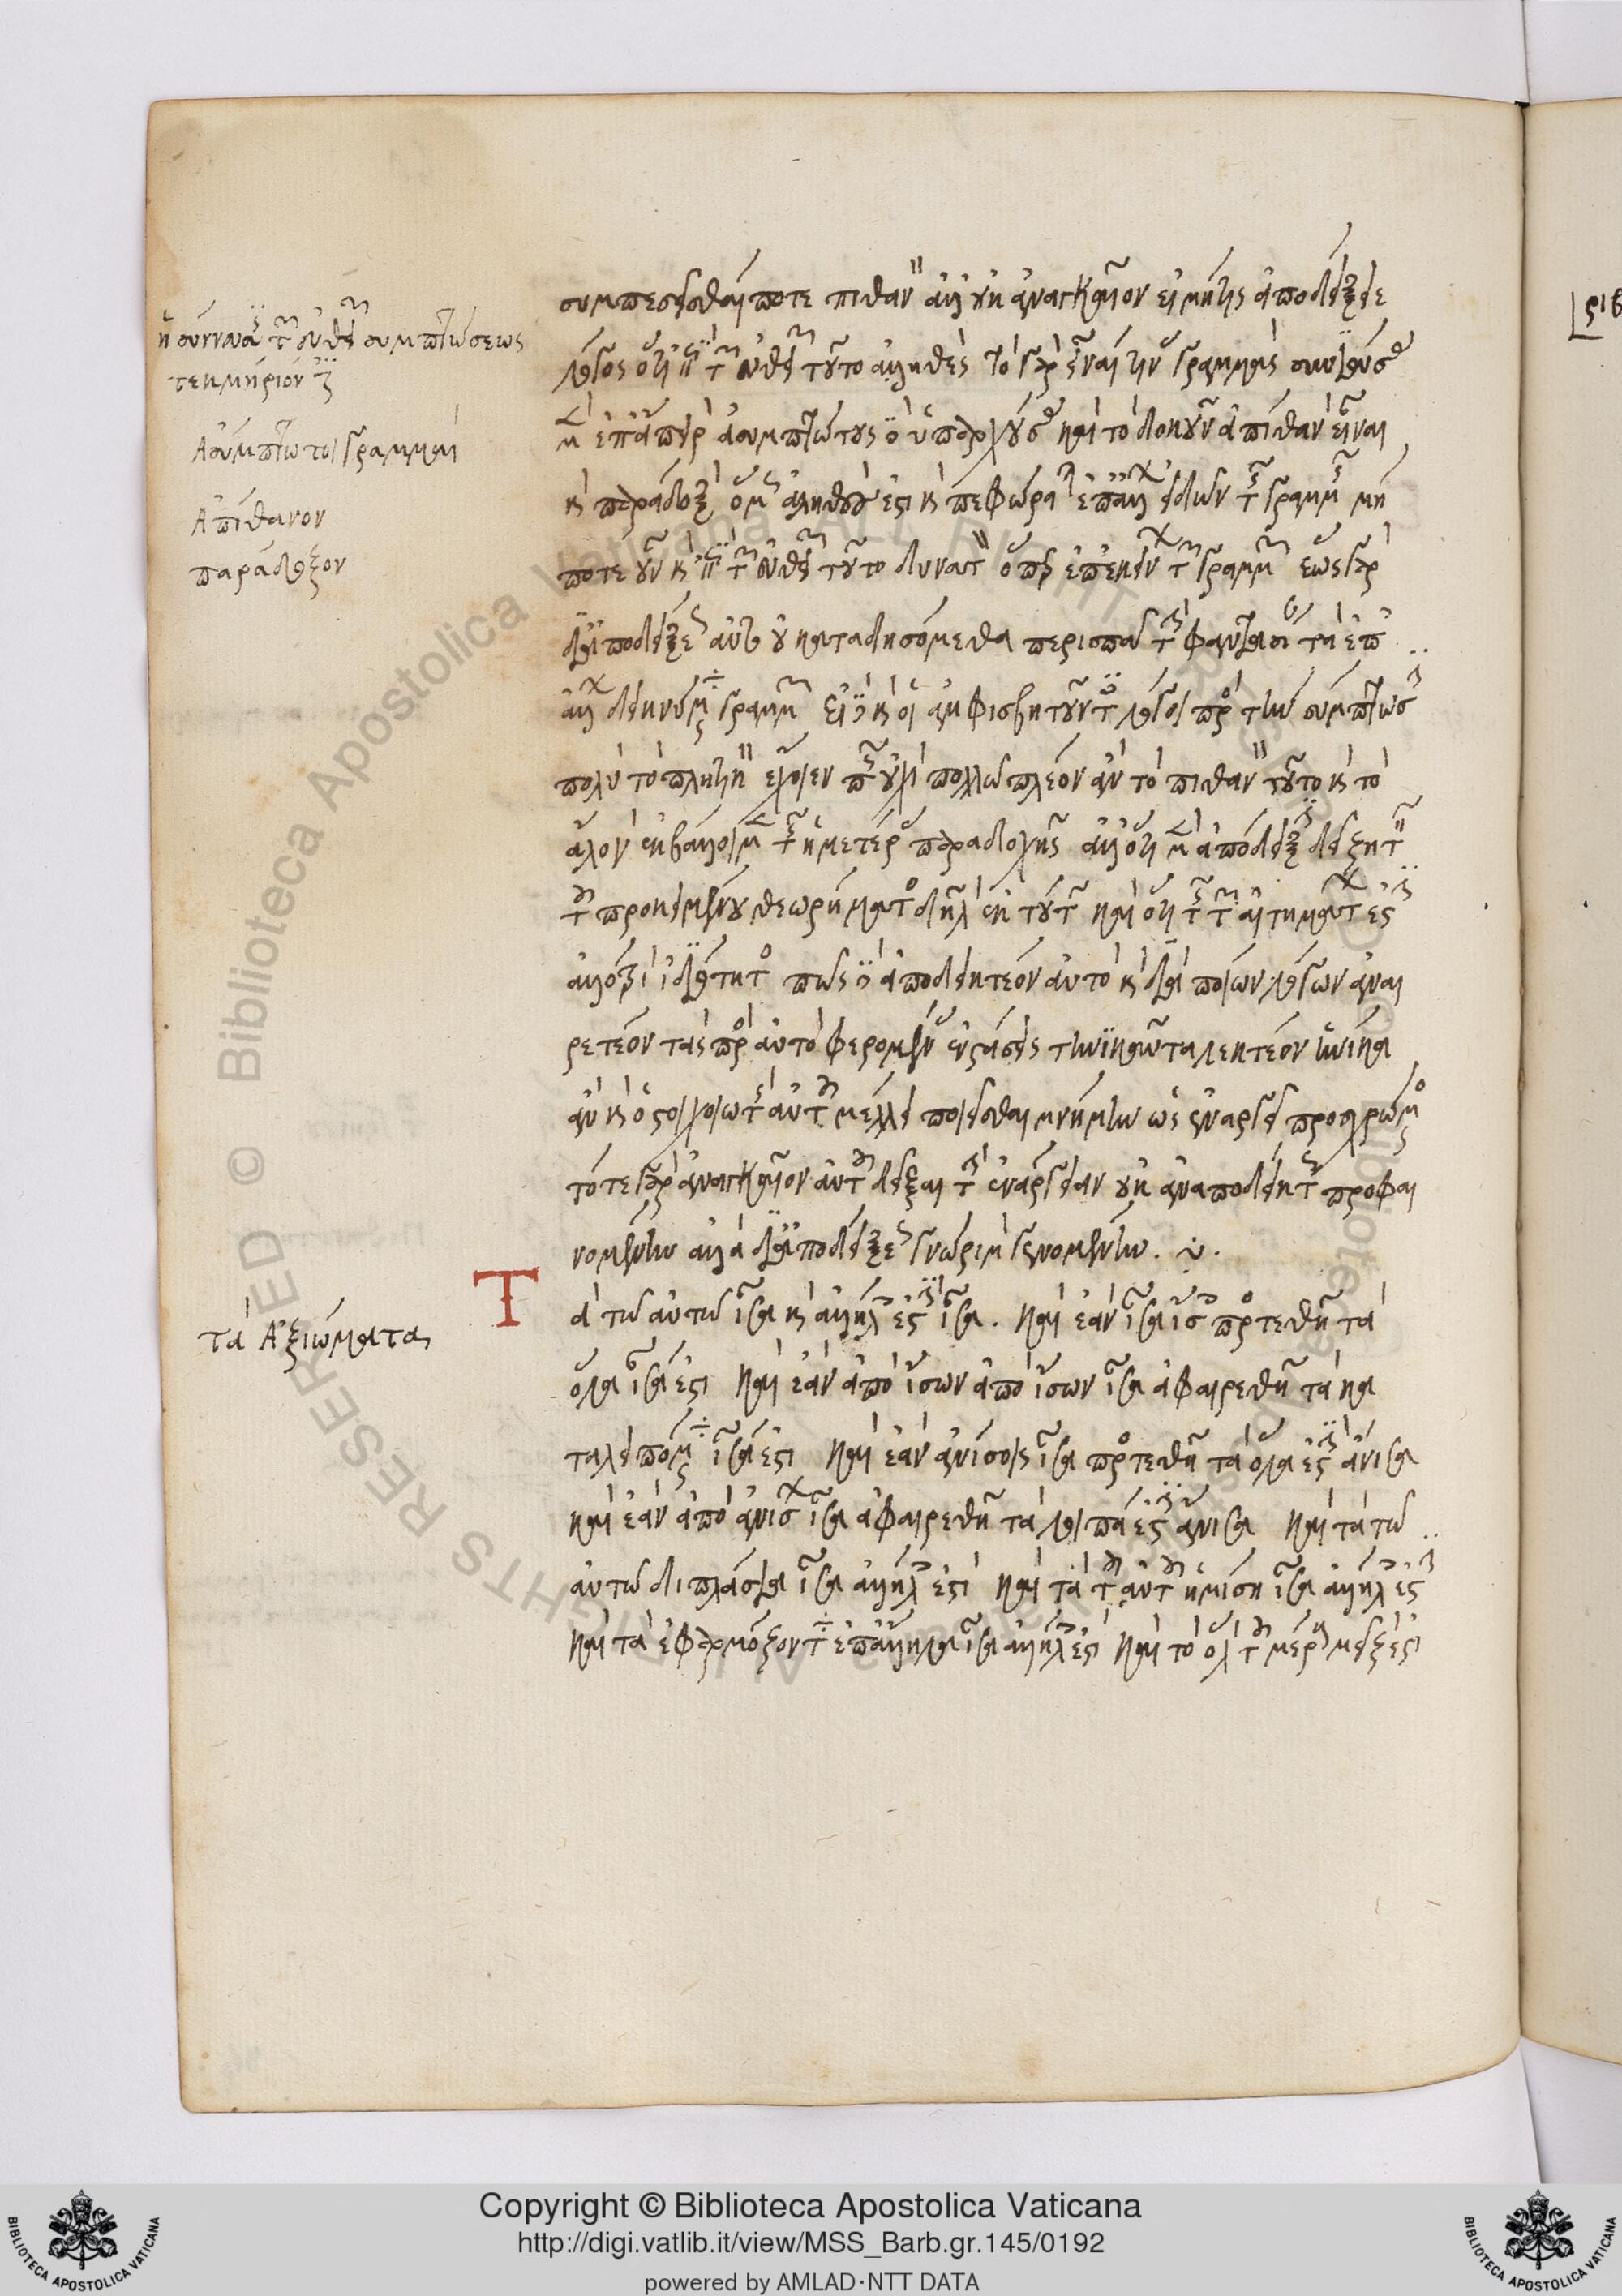 συμπεσεῖσθαί ποτε πιθανὸν ἀλλ' οὐκ ἀναγκαῖον εἰ μήτις ἀποδείξειε
λόγος ὅτι ἐπὶ τῶν εὐθειῶν τοῦτο ἀληθές τὸ γὰρ εἶναί τινας γραμμὰς συνιούσας
μὲν ἐπάπειρον ἀσυμπτώτους δὲ ὑπαρχούσας καίτοι δοκοῦν ἀπίθανον εἶναι
καὶ παράδοξον ὅμως ἀληθές ἐστι καὶ πεφώραται ἐπάλλων εἰδῶν τῆς γραμμῆς μή
ποτε οὖν καὶ ἐπὶ τῶν εὐθειῶν τοῦτο δυνατὸν ὅπερ ἐπεκείνων τῶν γραμμῶν ἕως γὰρ
δι' ἀποδείξεως αὐτὸ καταδησόμεθα περισπᾷ τὴν φαντασίαν τὰ ἐπ'
ἄλλων δεικνύμενα γραμμῶν εἰ δὲ καὶ οἱ ἀμφισβητοῦντες λόγοι πρὸς τὴν σύμπτωσιν
πολὺ τὸ πληκτικὸν ἔχοιεν πῶς οὐχὶ πολλῷ πλέον ἂν τὸ πιθανὸν τοῦτο καὶ τὸ
ἄλογον ἐκβάλλοιμεν τῆς ἡμετέρας παραδοχῆς ἀλλ' ὅτι μὲν ἀπόδειξιν δεῖ ζητεῖν
τοῦ προκειμένου θεωρήματος δῆλον ἐκ τούτων καὶ ὅτι τῆς τῶν αἰτημάτων ἐστὶν
ἀλλότριον ἰδιότητος πῶς δὲ ἀποδεικτέον αὐτὸ καὶ διὰ ποίων λόγων ἀναι
ρετέον τὰς πρὸς αὐτὸ φερομένας ἐνστάσεις τηνικαῦτα λεκτέον ἡνίκα
ἂν καὶ ὁ στοιχειωτὴς αὐτοῦ μέλλῃ ποιεῖσθαι μνήμην ὡς ἐναργεῖ προσχρώμενος
τότε γὰρ ἀναγκαῖον αὐτοῦ δεῖξαι τὴν ἐνάργειαν οὐκ ἀναποδείκτως προφαι
νομένην ἀλλὰ δι' ἀποδείξεως γνώριμον γενομένην.
Τὰ τῷ αὐτῷ ἴσα καὶ ἀλλήλοις ἐστὶν ἴσα. καὶ ἐὰν ἴσα ἴσοις προστεθῇ τὰ
ὅλα ἴσα ἐστι καὶ ἐὰν ἀπὸ ἴσων ἀπὸ ἴσων ἴσα ἀφαιρεθῇ τὰ κα
ταλειπόμενα ἴσα ἐστι καὶ ἐὰν ἀνίσοις ἴσα προστεθῇ τὰ ὅλα ἐστὶν ἄνισα
καὶ ἐὰν ἀπὸ ἀνίσων ἴσα ἀφαιρεθῇ τὰ λοιπά ἐστιν ἄνισα καὶ τὰ τοῦ
αὐτοῦ διπλάσια ἴσα ἀλλήλοις ἐστὶ καὶ τὰ τοῦ αὐτοῦ ἡμίση ἴσα ἀλλήλοις ἐστὶν
καὶ τὰ ἐφαρμόζοντα ἐπάλληλα ἴσα ἀλλήλοις ἐστὶ καὶ τὸ ὅλον τοῦ μέρους μεῖζόν ἐστι
τῶν εὐθειῶν συμπτώσεως
τεκμήριον
Ἀσύμπτωτοι γραμμαί
Ἀπίθανον
παράδοξον
τὰ Ἀξιώματα
© Biblioteca Apostolica Vaticana ALL RIGHTS RESERVED
Copyright © Biblioteca Apostolica Vaticana
http://digi.vatlib.it/view/MSS_Barb.gr.145/0192
powered by AMLAD·NTT DATA
BIBLIOTECA APOSTOLICA VATICANA
BIBLIOTECA APOSTOLICA VATICANA